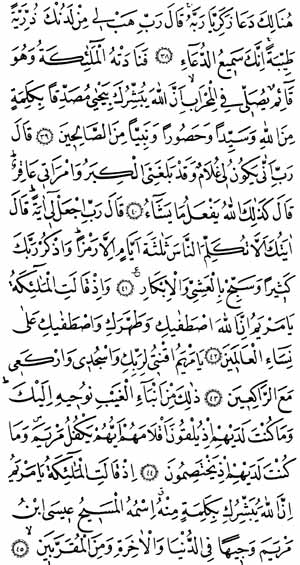 هُنَالِكَ دَعَا زَكَرِيَّا رَبَّهُ ۚ قَالَ رَبِّ هَبْ لِي مِنْ لَدُنْكَ ذُرِّيَّةً
طَيِّبَةً ۚ إِنَّكَ سَمِيعُ الدُّعَاءِ ﴿٣٨﴾ فَنَادَتْهُ الْمَلٰئِكَةُ وَهُوَ
قَائِمٌ يُصَلِّي فِي الْمِحْرَابِ أَنَّ اللهَ يُبَشِّرُكَ بِيَحْيٰى مُصَدِّقًا بِكَلِمَةٍ
مِنَ اللهِ وَسَيِّدًا وَحَصُورًا وَنَبِيًّا مِنَ الصَّالِحِينَ ﴿٣٩﴾ قَالَ
رَبِّ أَنّٰى يَكُونُ لِي غُلَامٌ وَقَدْ بَلَغَنِيَ الْكِبَرُ وَامْرَأَتِي عَاقِرٌ ۖ
قَالَ كَذٰلِكَ اللهُ يَفْعَلُ مَا يَشَاءُ ﴿٤٠﴾ قَالَ رَبِّ اجْعَلْ لِي آيَةً ۖ قَالَ
آيَتُكَ أَلَّا تُكَلِّمَ النَّاسَ ثَلٰثَةَ أَيَّامٍ إِلَّا رَمْزًا ۗ وَاذْكُرْ رَبَّكَ
كَثِيرًا وَسَبِّحْ بِالْعَشِيِّ وَالْإِبْكَارِ ﴿٤١﴾ وَإِذْ قَالَتِ الْمَلٰئِكَةُ
يَا مَرْيَمُ إِنَّ اللهَ اصْطَفٰيكِ وَطَهَّرَكِ وَاصْطَفٰيكِ عَلٰى
نِسَاءِ الْعَالَمِينَ ﴿٤٢﴾ يَا مَرْيَمُ اقْنُتِي لِرَبِّكِ وَاسْجُدِي وَارْكَعِي
مَعَ الرَّاكِعِينَ ﴿٤٣﴾ ذٰلِكَ مِنْ أَنْبَاءِ الْغَيْبِ نُوحِيهِ إِلَيْكَ ۚ
وَمَا كُنْتَ لَدَيْهِمْ إِذْ يُلْقُونَ أَقْلَامَهُمْ أَيُّهُمْ يَكْفُلُ مَرْيَمَ ۖ وَمَا
كُنْتَ لَدَيْهِمْ إِذْ يَخْتَصِمُونَ ﴿٤٤﴾ إِذْ قَالَتِ الْمَلٰئِكَةُ يَا مَرْيَمُ
إِنَّ اللهَ يُبَشِّرُكِ بِكَلِمَةٍ مِنْهُ ۖ اسْمُهُ الْمَسِيحُ عِيسَى ابْنُ
مَرْيَمَ وَجِيهًا فِي الدُّنْيَا وَالْآخِرَةِ وَمِنَ الْمُقَرَّبِينَ ﴿٤٥﴾